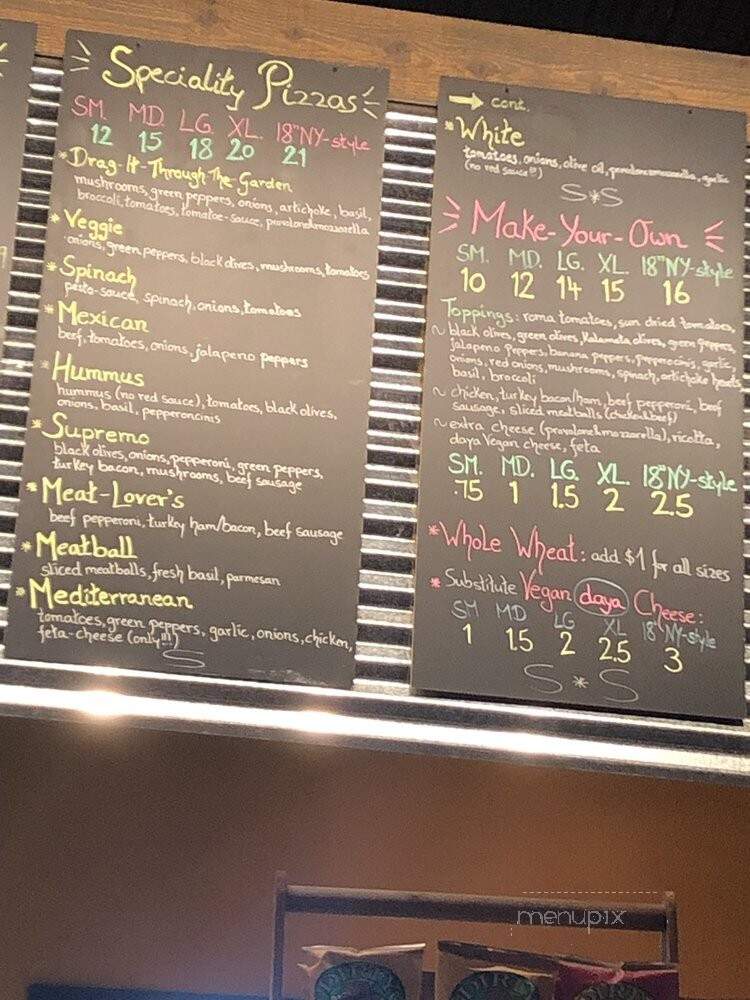 Speciality Pizzas
SM. MD. LG. XL. 18" NY-style
12 15 18 20 21
*Drag-It-Through The Garden
mushrooms, green peppers, onions, artichoke, basil,
broccoli, tomatoes, tomatoe-sauce, provolone&mozzarella
*Veggie
onions, green peppers, black olives, mushrooms, tomatoes
*Spinach
pesto-sauce, spinach, onions, tomatoes
*Mexican
beef, tomatoes, onions, jalapeno peppers
*Hummus
hummus (no red sauce), tomatoes, black olives,
onions, basil, pepperoncinis
*Supremo
black olives, onions, pepperoni, green peppers,
turkey bacon, mushrooms, beef sausage
*Meat-Lover's
beef pepperoni, turkey ham/bacon, beef sausage
*Meatball
sliced meatballs, fresh basil, parmesan
*Mediterranean
tomatoes, green peppers, garlic, onions, chicken,
feta-cheese (only!!!)
S
→ cont.
*White
tomatoes, onions, olive oil, provolone&mozzarella, garlic
(no red sauce!!)
S*S
Make-Your-Own
SM. MD. LG. XL. 18" NY-style
10 12 14 15 16
Toppings: roma tomatoes, sun dried tomatoes,
~ black olives, green olives, Kalamata olives, green peppers,
jalapeno peppers, banana peppers, pepperocinis, garlic,
onions, red onions, mushrooms, spinach, artichoke hearts
basil, broccoli
~ chicken, turkey bacon/ham, beef pepperoni, beef
sausage, sliced meatballs (chicken&beef)
~ extra cheese (provolone&mozzarella), ricotta,
daya Vegan cheese, feta
SM. MD. LG. XL. 18" NY-style
.75 1 1.5 2 2.5
*Whole Wheat: add $1 for all sizes
*Substitute Vegan daya Cheese:
SM MD LG XL 18" NY-style
1 1.5 2 2.5 3
S*S
menupix